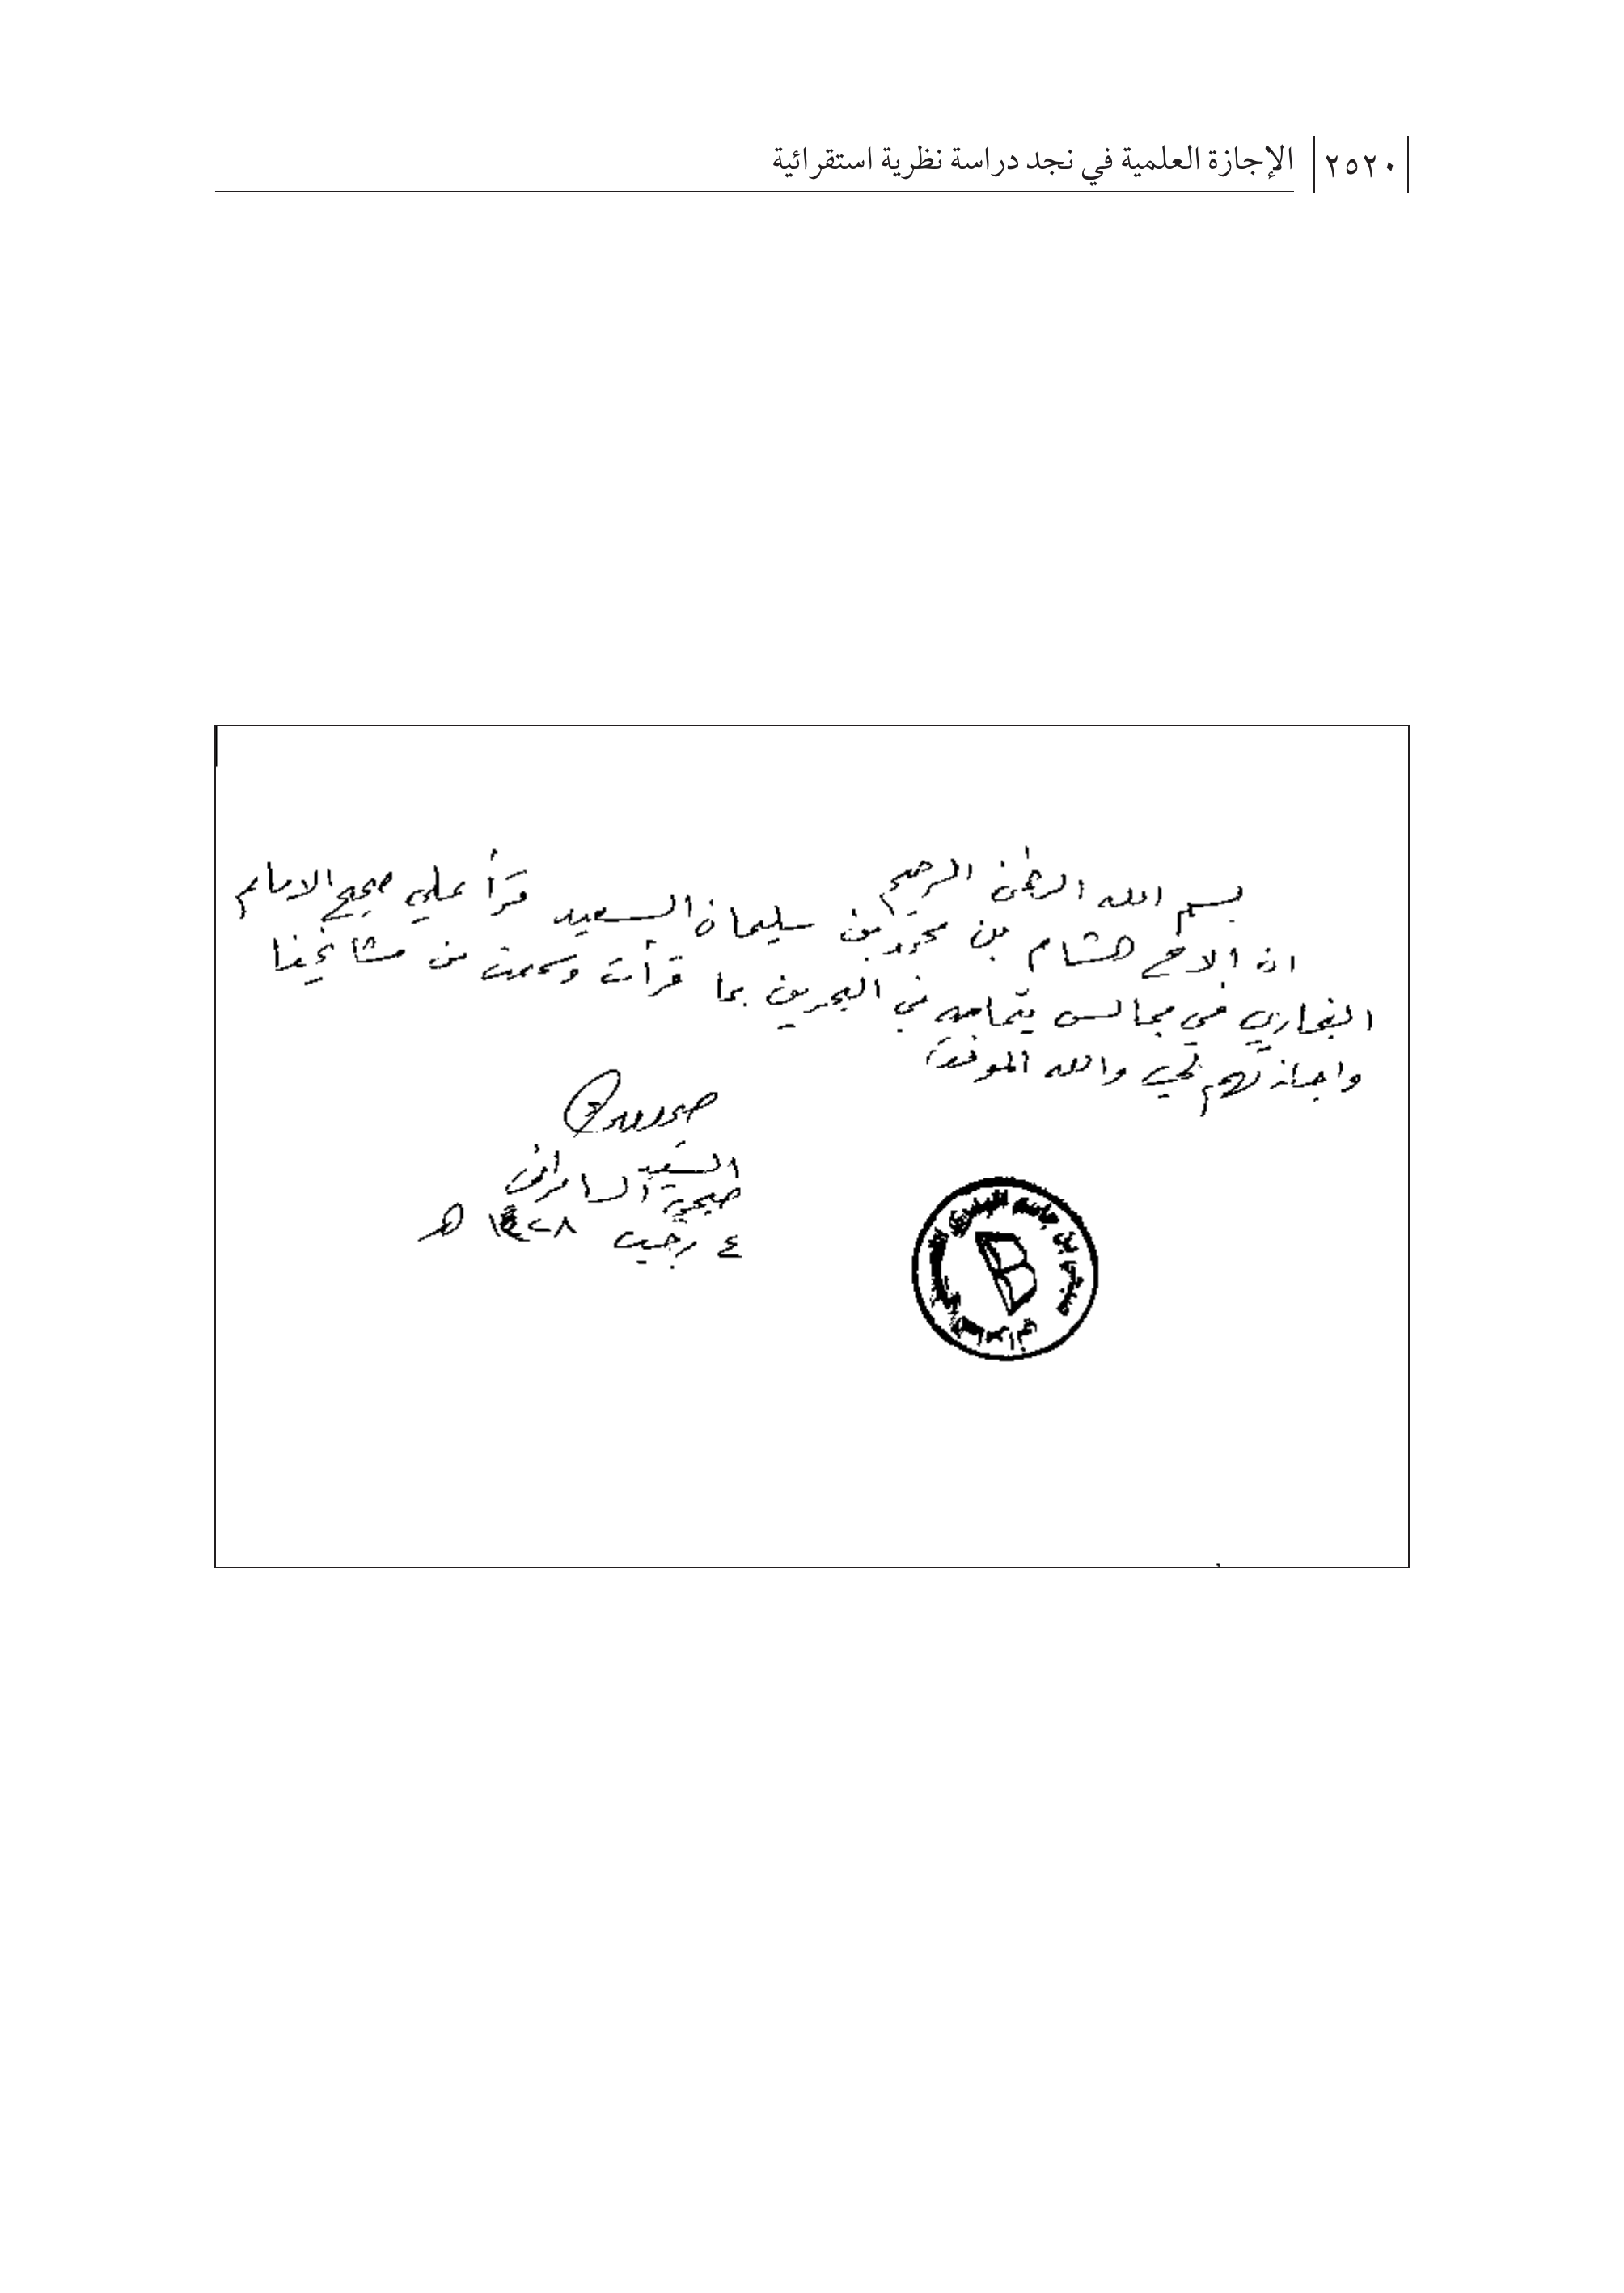 ٢٥٢٠ الإجازة العلمية في نجد دراسة نظرية استقرائية
بسم الله الرحمن الرحيم
ان الاخ هشام بن محمد بن سليمان السعيد قرأ علي صحيح الامام
البخاري في مجالس بتمامه في البحرين بما قرأت وسمعت من مشايخنا
واجازتهم لي والله الموفق
السيد
صبحي السامرائي
٤ رجب ١٤٢٨ هـ